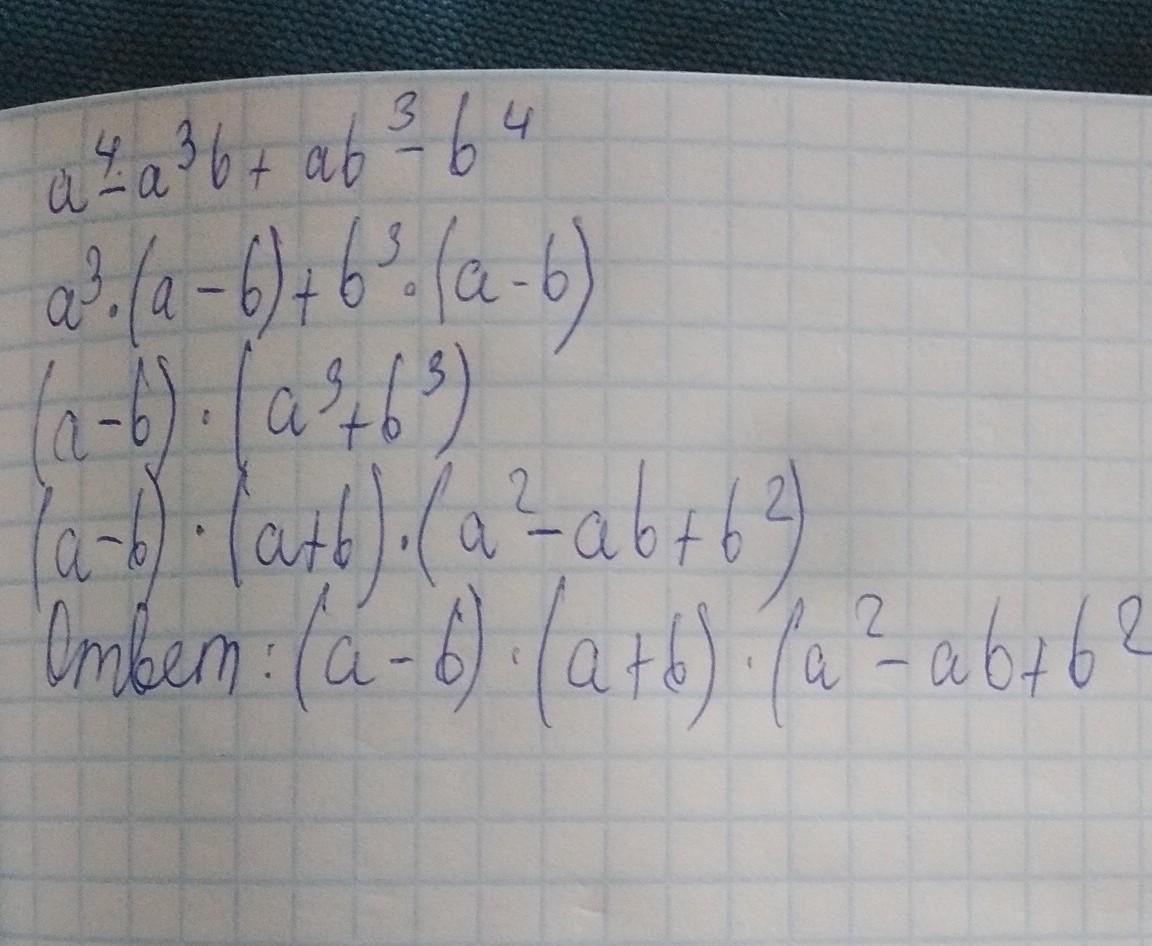 a⁴-a³b+ab³-b⁴
a³·(a-b)+b³·(a-b)
(a-b)·(a³+b³)
(a-b)·(a+b)·(a²-ab+b²)
Ответ:(a-b)·(a+b)·(a²-ab+b²